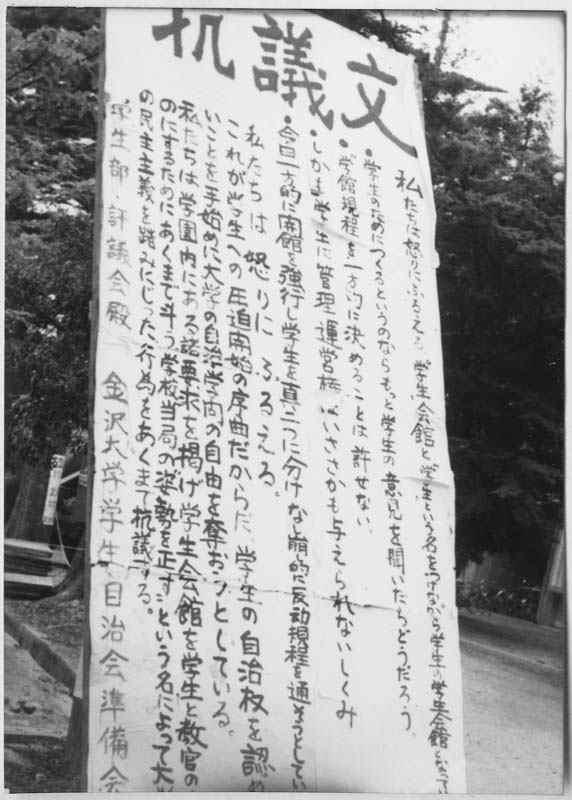 抗議文
私たちは怒りにふるえる。学生会館と学生という名をつけながら学生の学生会館となって
・学生のためにつくるというのならもっと学生の意見を聞いたらどうだろう。
・学館規程を一方的に決めることは許せない。
・しかも学生に管理運営権はいささかも与えられないしくみ
・今日一方的に開館を強行し学生を真二つに分けなし崩的に反動規程を通そうとしてい
私たちは怒りにふるえる。
これが学生への圧迫開始の序曲だからだ、学生の自治权を認め
いことを手始めに大学の自治学内の自由を奪おうとしている。
私たちは学園内にある諸要求を掲げ学生会館を学生と教官の
のにするためにあくまで斗う学校当局の姿勢を正すという名によって大
の民主主義を踏みにじった行為をあくまで抗議する。
学生部・評議会殿 金沢大学学生自治会準備会